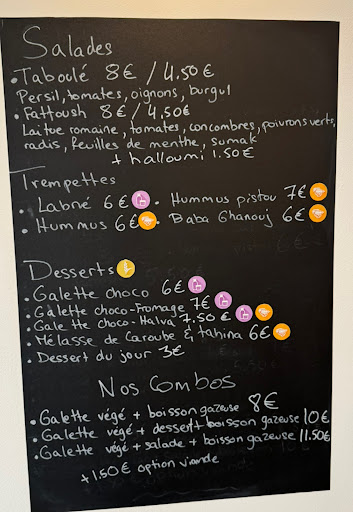 Salades
• Taboulé 8€ / 4.50€
Persil, tomates, oignons, burgul
• Fattoush 8€ / 4.50€
Laitue romaine, tomates, concombres, poivrons verts,
radis, feuilles de menthe, sumak
+ halloumi 1.50€
Trempettes
• Labné 6€ • Hummus pistou 7€
• Hummus 6€ • Baba Ghanouj 6€
Desserts
• Galette choco 6€
• Galette choco-fromage 7€
• Galette choco-Halva 7.50€
• Mélasse de Caroube & tahina 6€
• Dessert du jour 3€
Nos Combos
• Galette végé + boisson gazeuse 8€
• Galette végé + dessert + boisson gazeuse 10€
• Galette végé + salade + boisson gazeuse 11.50€
+1.50€ option viande